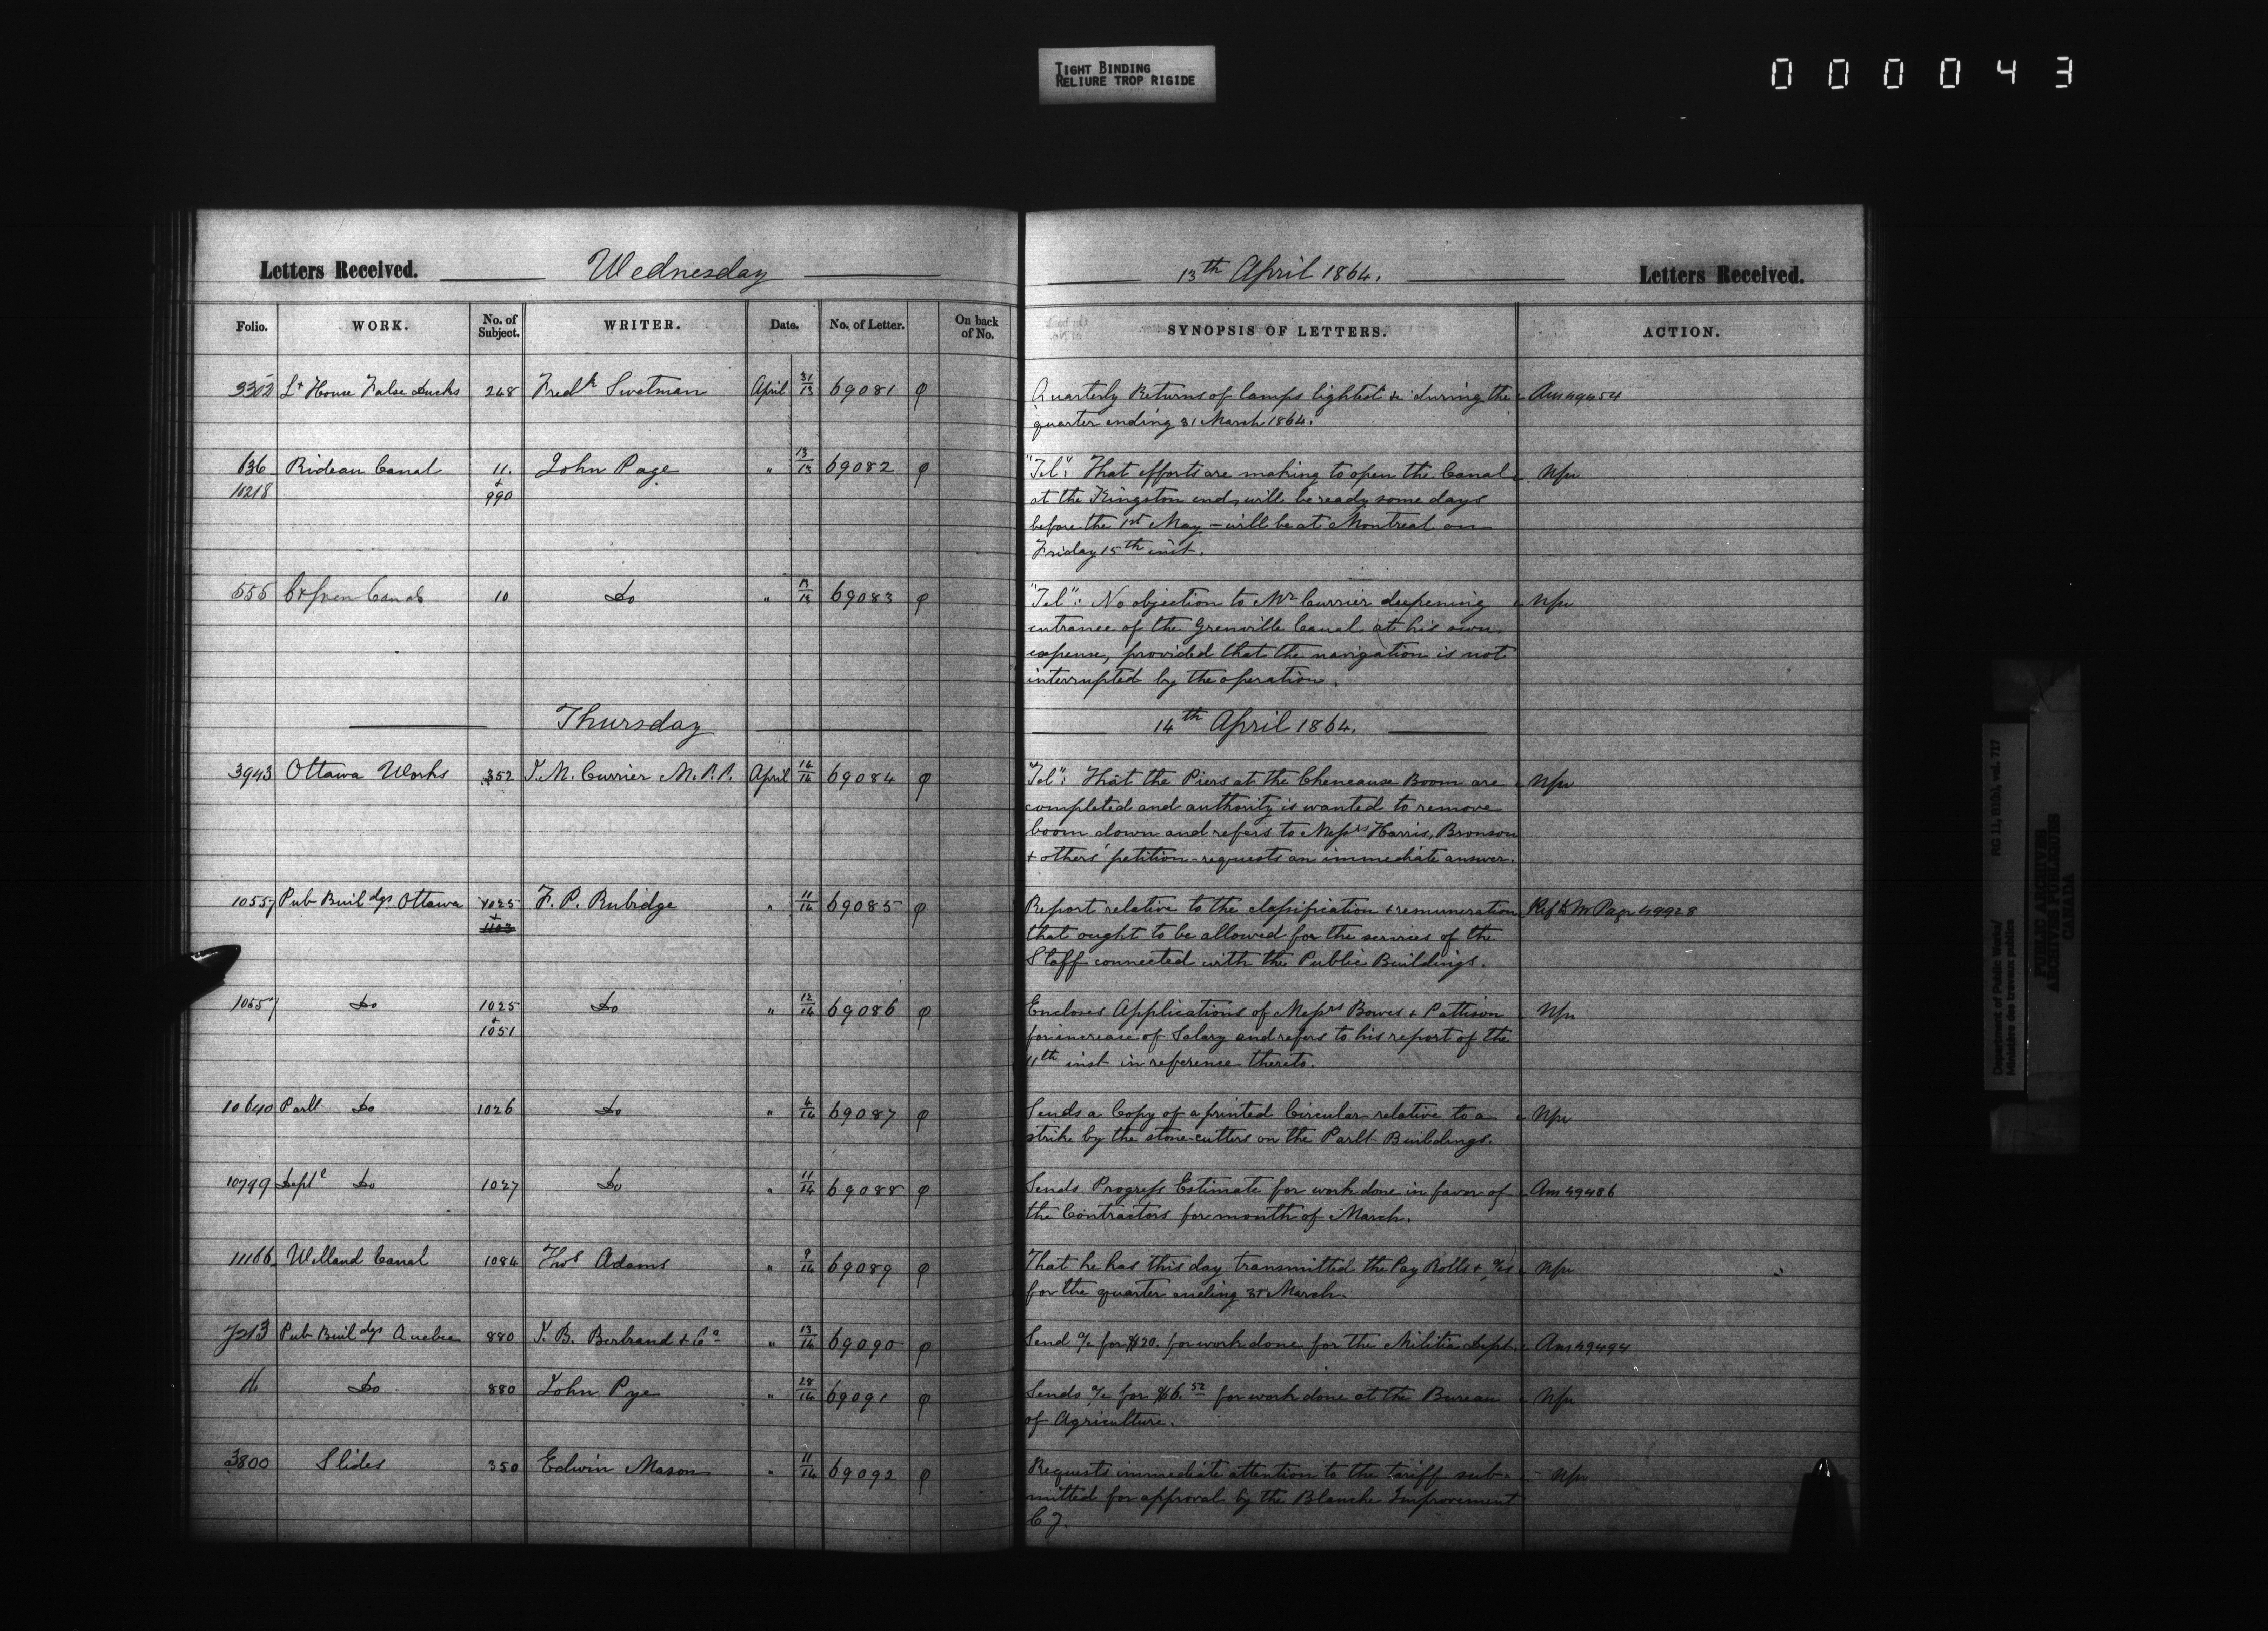 TIGHT BINDING
RELIURE TROP RIGIDE
000043
Letters Received. Wednesday
Folio. WORK. No. of Subject. WRITER. Date. No. of Letter. On back of No.
3302 Lt House False Ducks 268 Fredk Swetman April 31/13 69081 φ
636 Rideau Canal 11. John Page " 13/13 69082 φ
10218 + 990
555 10 Do " 13/13 69083 φ
Thursday
3943 Ottawa Works 352 J. M. Currier M.P.P. April 14/14 69084 φ
10557 Pub Buildgs Ottawa 1025 F. P. Rubidge " 11/14 69085 φ
+ 1103
10557 Do 1025 Do " 12/14 69086 φ
+ 1051
10640 Parlt Do 1026 Do " 4/14 69087 φ
10799 Deptl Do 1027 Do " 11/14 69088 φ
11166 Welland Canal 1084 Thos Adams " 9/14 69089 φ
7213 Pub Buildgs Quebec 880 J. B. Bertrand & Co " 13/14 69090 φ
Do 880 John Pye " 28/14 69091 φ
3800 Slides 350 Edwin Mason " 11/14 69092 φ
13th April 1864. Letters Received.
SYNOPSIS OF LETTERS. ACTION.
Quarterly Returns of lamps lighted &c during the Am 49454
quarter ending 31 March 1864.
"Tel": That efforts are making to open the Canal
at the Kingston end, will be ready some days
before the 1st May – will be at Montreal on
Friday 15th inst.
"Tel": No objection to Mr Currier deepening
entrance of the Grenville Canal at his own
expense, provided that the navigation is not
interrupted by the operation.
14th April 1864.
"Tel": That the Piers at the Cheneaux Boom are
completed and authority is wanted to remove
boom down and refers to Messrs Harris, Bronson
& others' petition – requests an immediate answer.
Report relative to the classification & remuneration Ref to Mr Page 49928
that ought to be allowed for the services of the
Staff connected with the Public Buildings.
Encloses Applications of Messrs Bowes & Pattison
for increase of Salary and refers to his report of the
11th inst in reference thereto.
Sends a Copy of a printed Circular relative to a
strike by the stone-cutters on the Parlt Buildings.
Sends Progress Estimate for work done in favor of Am 49486
the Contractors for month of March.
That he has this day transmitted the Pay Rolls & a/cs
for the quarter ending 31 March.
Send a/c for $20. for work done for the Militia Dept. Am 49494
Sends a/c for $6.52 for work done at the Bureau
of Agriculture.
Requests immediate attention to the tariff sub-
mitted for approval by the Blanche Improvement
Cy.
Department of Public Works/ RG 11, B1(b), vol. 717
Ministère des travaux publics
PUBLIC ARCHIVES
ARCHIVES PUBLIQUES
CANADA